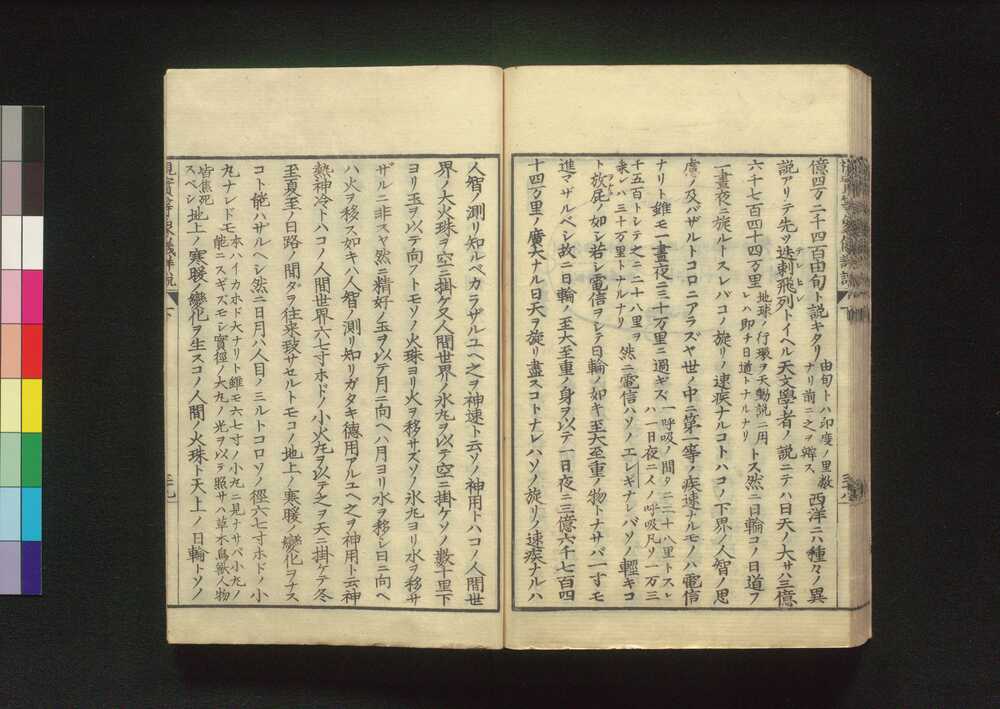 億四万二千四百由旬ト説キタリ由旬トハ印度ノ里数ナリ前ニ之ヲ辨ス西洋ニハ種々ノ異
説アリテ先ツ迭刺飛列トイヘル天文學者ノ説ニテハ日天ノ大サハ三億
六十七百四十四万里地球ノ行環ヲ天動説ニ用レハ即チ日道トナルナリトス然ニ日輪コノ日道ヲ
一晝夜ニ旋ルトスレバコノ旋リノ速疾ナルコトハコノ下界ノ人智ノ思
慮ノ及バザルトコロニアラズヤ世ノ中ニ第一等ノ疾速ナルモノハ電信
ナリト雖モ一晝夜ニ三十万里ニ過ギス一呼吸ノ間タ二十八里トスレハ一日夜ニ人ノ呼吸凡ソ一万三
千五百トシテ之ニ二十八里ヲ乗レハ三十万里トナルナリ然ニ電信ハソノエレキナレバソノ輕キコ
ト放屁ノ如シ若シ電信ヲシテ日輪ノ如キ至大至重ノ物トナサバ一寸モ
進マザルベシ故ニ日輪ノ至大至重ノ身ヲ以テ一日夜ニ三億六千七百四
十四万里ノ廣大ナル日天ヲ旋リ盡スコトナレハソノ旋リノ速疾ナルハ
人智ノ測リ知ルベカラザルユヘ之ヲ神速ト云ソノ神用トハコノ人間世
界ノ大火珠ヲ空ニ掛ケ又人間世界ノ氷丸ヲ以テ空ニ掛ケソノ数十里下
ヨリ玉ヲ以テ向フトモソノ火珠ヨリ火ヲ移サズソノ氷丸ヨリ水ヲ移サ
ザルニ非スヤ然ニ精好ノ玉ヲ以テ月ニ向ヘハ月ヨリ水ヲ移シ日ニ向ヘ
ハ火ヲ移ス如キハ人智ノ測リ知リガタキ徳用アルユヘ之ヲ神用ト云神
熱神冷トハコノ人間世界六七寸ホドノ小火丸ヲ以テ之ヲ天ニ掛ケテ冬
至夏至ノ日路ノ間ダヲ往来致サセルトモコノ地上ノ寒暖ノ變化ヲナス
コト能ハザルヘシ然ニ日月ハ人目ノ三ルトコロソノ徑六七寸ホドノ小
丸ナレドモ本ハイカホド大ナリト雖モ六七寸ノ小丸ニ見ナサバ小丸ノ能ニスギズモシ實徑ノ大丸ノ光ヲ以テ照サハ草木鳥獣人物
皆焦死スベシ地上ノ寒暖ノ變化ヲ生スコノ人間ノ火珠ト天上ノ日輪トソノ